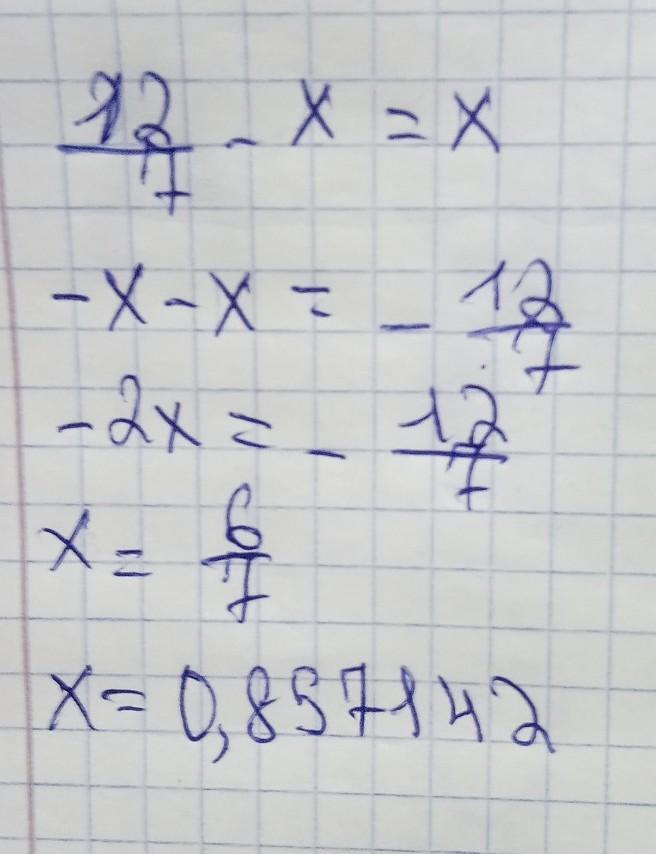 12/7 - x = x
-x-x = - 12/7
-2x = - 12/7
x = 6/7
x = 0,857142